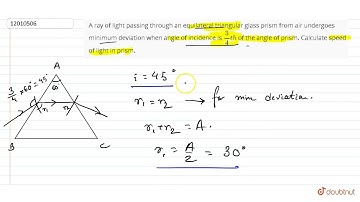 12010506
A ray of light passing through an equilateral triangular glass prism from air undergoes
minimum deviation when angle of incidence is 3/4 th of the angle of prism. Calculate speed
of light in prism.
A
3/4 × 60° = 45°
60
r₁ r₂
B C
i = 45°
r₁ = r₂ → for min deviation.
r₁ + r₂ = A.
r₁ = A/2 = 30°
doubtnut